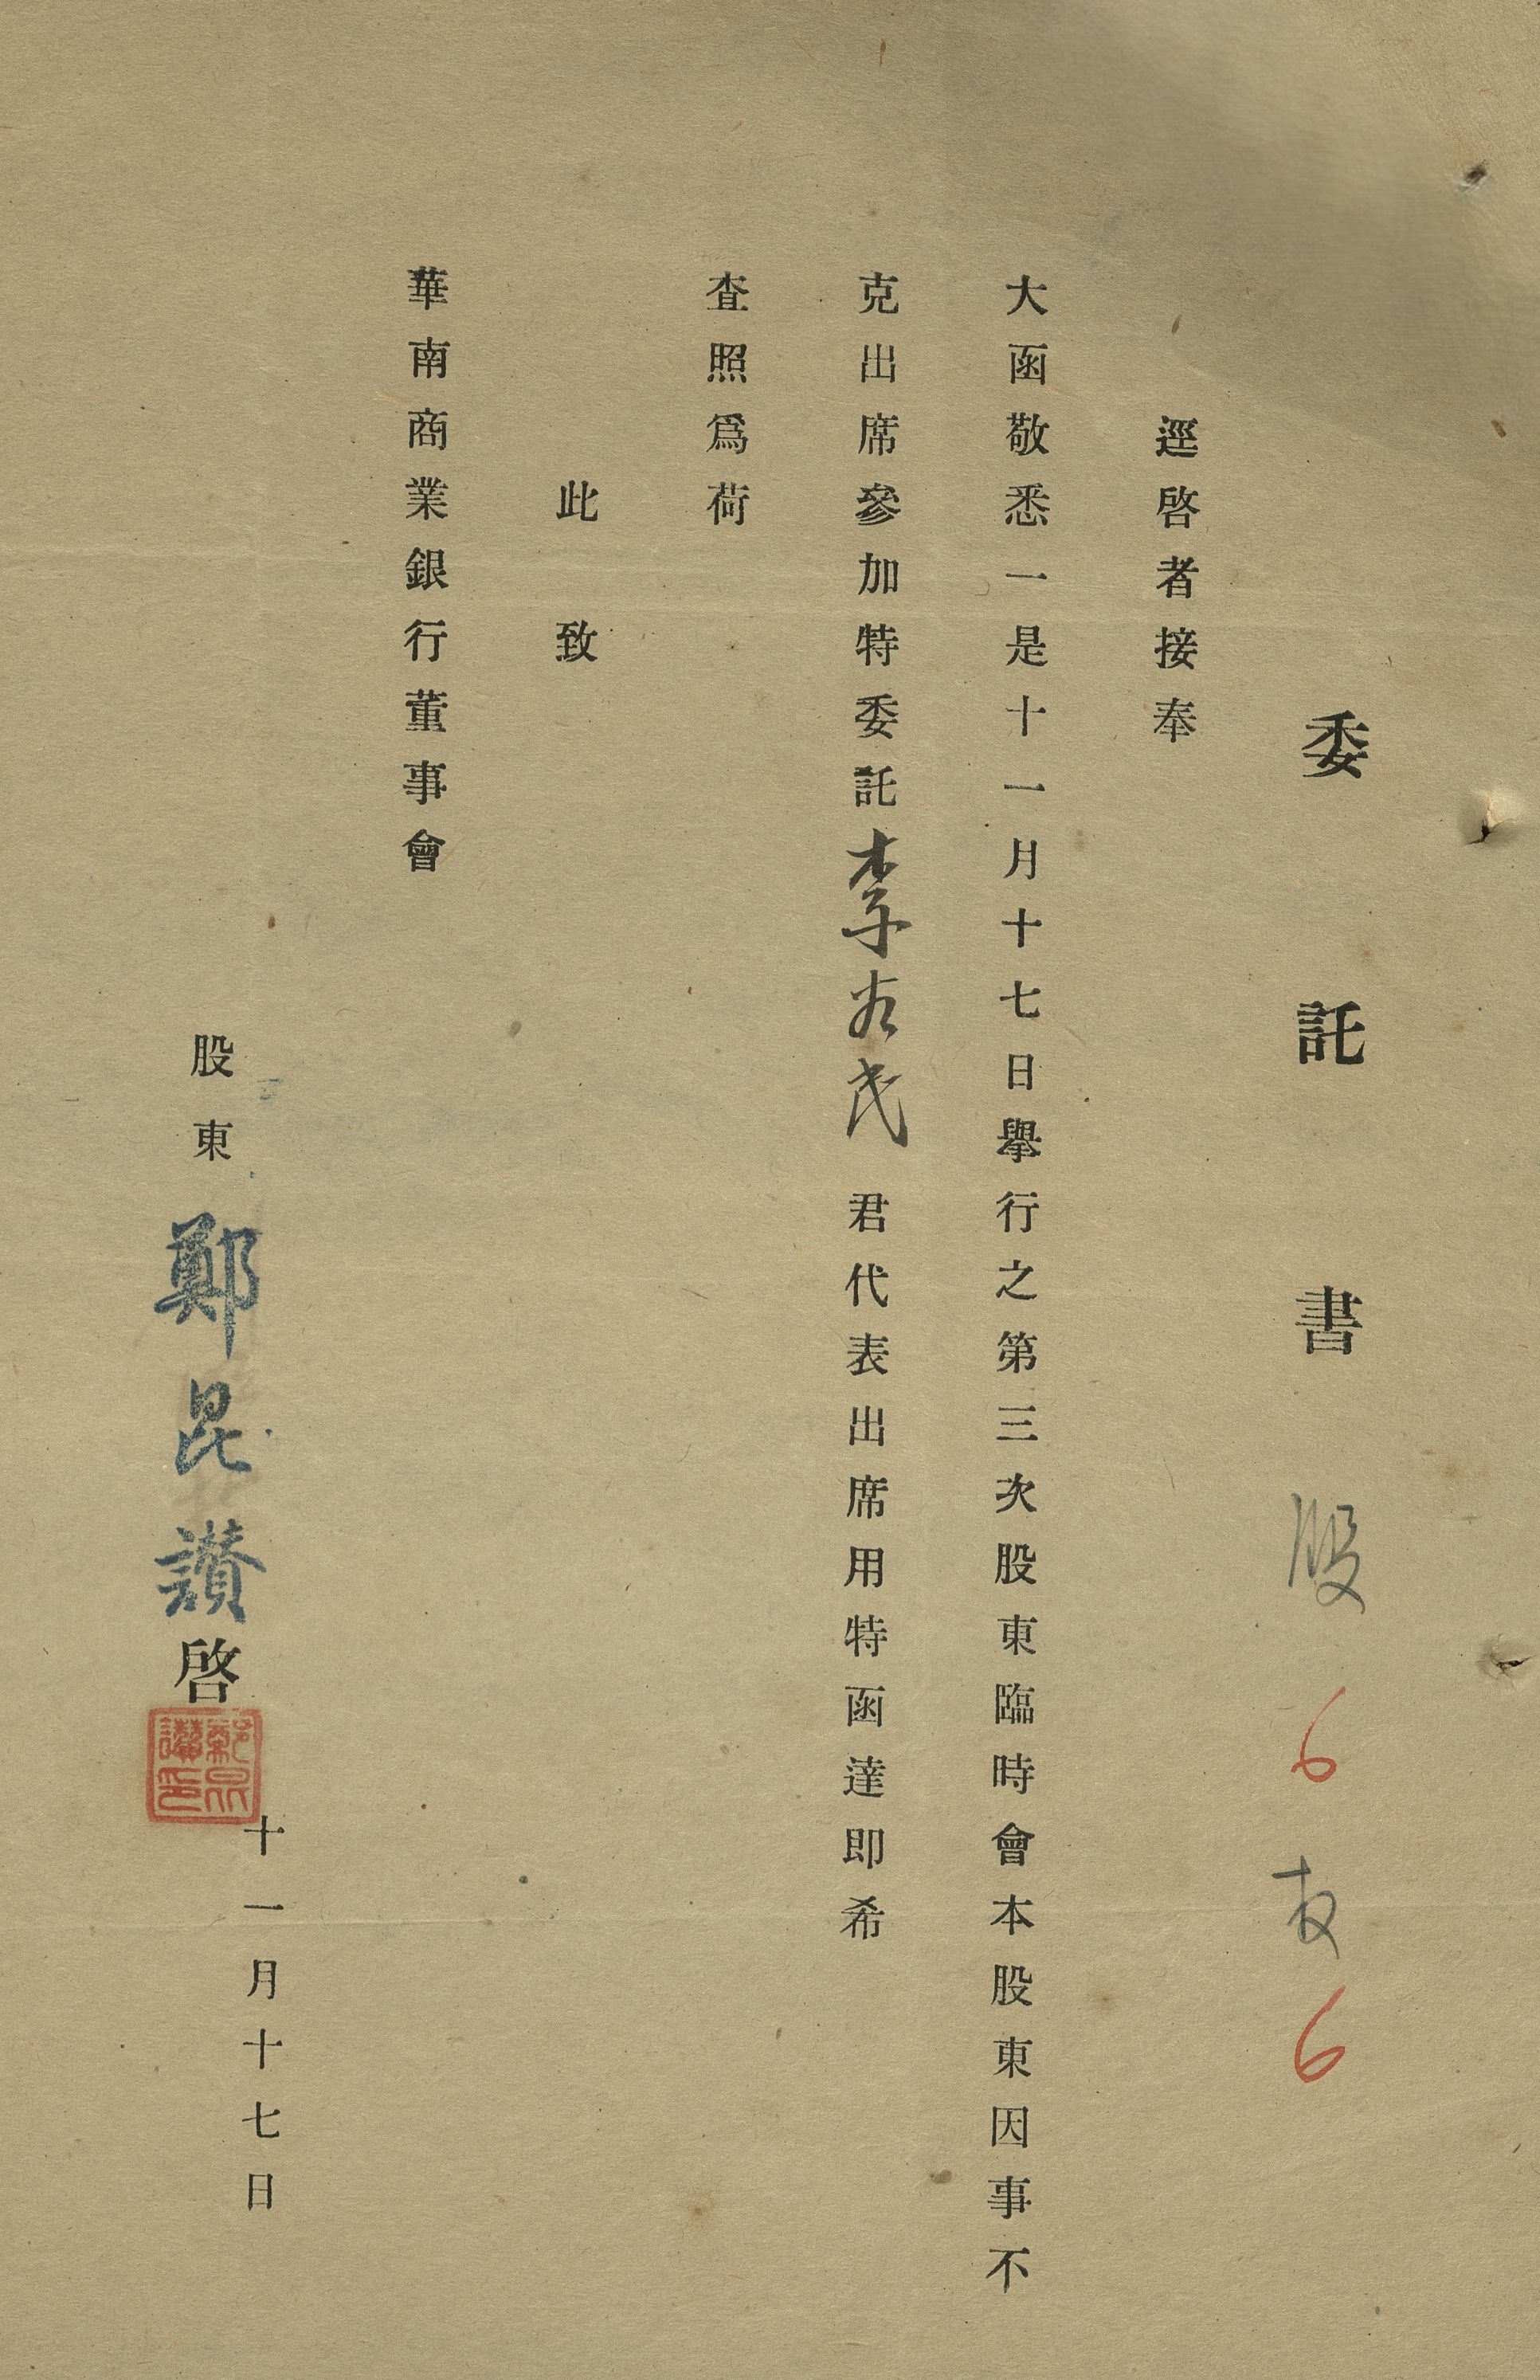 委託書 股 6 权 6
逕啓者接奉
大函敬悉一是十一月十七日舉行之第三次股東臨時會本股東因事不
克出席參加特委託李 民君代表出席用特函達即希
查照爲荷
此致
華南商業銀行董事會
股東 鄭昆讃啓
鄭昆讃印
十一月十七日